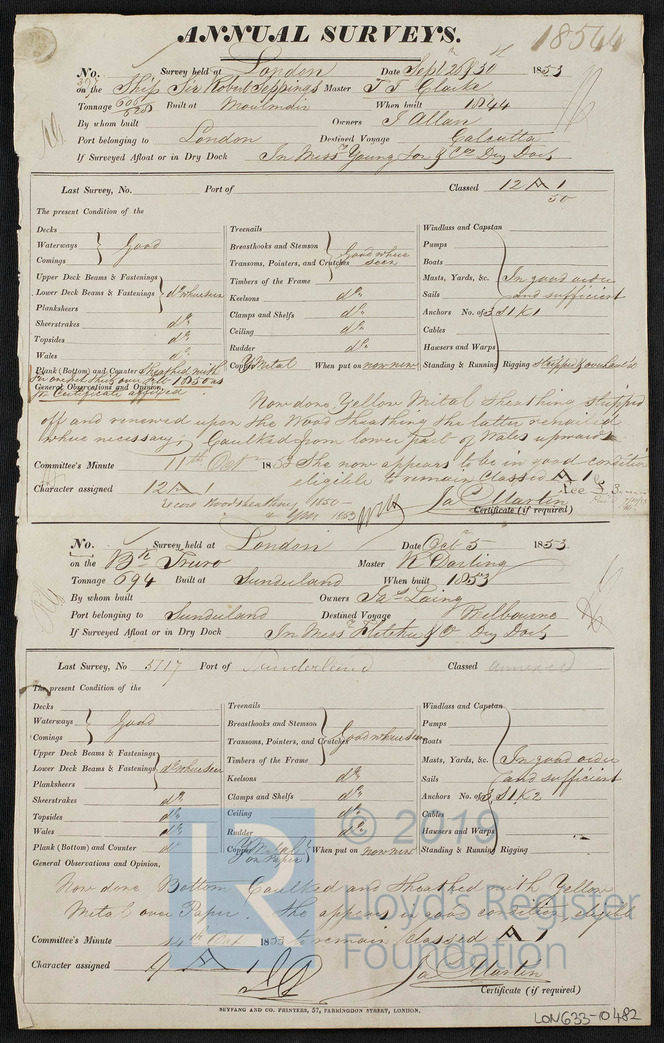 ANNUAL SURVEYS. 18544
No. 397 Survey held at London Date Septr 28 & 30th 1853
on the Ship Sir Robert Seppings Master J T Clarke
Tonnage 606/628 Built at Moulmein When built 1844
By whom built Owners J Allan
Port belonging to London Destined Voyage Calcutta
If Surveyed Afloat or in Dry Dock In Messrs Young Son & Co Dry Dock
Last Survey, No. Port of Classed 12 A 1
50
The present Condition of the
Decks Treenails Windlass and Capstan
Waterways } Good Breasthooks and Stemson Pumps
Comings Transoms, Pointers, and Crutches } Good where seen Boats
Upper Deck Beams & Fastenings Timbers of the Frame Masts, Yards, &c. In good order
Lower Deck Beams & Fastenings } do where seen Keelsons do Sails and sufficient
Planksheers Clamps and Shelfs do Anchors No. of 3 S 1 K 1
Sheerstrakes do Ceiling do Cables
Topsides do Rudder do Hawsers and Warps
Wales do Copper Y Metal When put on now new Standing & Running Rigging stripped & overhaul'd
Plank (Bottom) and Counter Sheathed with
1850 as
General Observations and Opinion,
pr Certificate affixed
Now done, Yellow Metal Sheathing stripped
off and renewed upon the Wood Sheathing the latter repaired
where necessary; Caulked from lower part of Wales upwards
Committee's Minute 11th Octr 1853 She now appears to be in good condition
eligible to remain Classed A 1
Character assigned 12 A 1
Record Wood sheathing 1850
& YM 1853
Jas Martin
Certificate (if required)
No. Survey held at London Date Octr 5 1853
on the Bk Truro Master R Darling
Tonnage 694 Built at Sunderland When built 1853
By whom built Owners Jas Laing
Port belonging to Sunderland Destined Voyage Melbourne
If Surveyed Afloat or in Dry Dock In Messrs Fletcher & Co Dry Dock
Last Survey, No 5717 Port of Sunderland Classed annexed
The present Condition of the
Decks Treenails Windlass and Capstan
Waterways } Good Breasthooks and Stemson Pumps
Comings Transoms, Pointers, and Crutches } Good where seen Boats
Upper Deck Beams & Fastenings Timbers of the Frame Masts, Yards, &c. In good order
Lower Deck Beams & Fastenings } do where seen Keelsons do Sails and sufficient
Planksheers Clamps and Shelfs do Anchors No. of 3 S 1 K 2
Sheerstrakes do Ceiling do Cables
Topsides do Rudder do Hawsers and Warps
Wales do Copper Y Metal on Paper When put on now new Standing & Running Rigging
Plank (Bottom) and Counter do
General Observations and Opinion,
Now done Bottom Caulked and Sheathed with Yellow
Metal over Paper. She appears in good condition, eligible
Committee's Minute 14th Oct 1853 to remain Classed A 1
Character assigned 9 A 1
Jas Martin
Certificate (if required)
SEYFANG AND CO. PRINTERS, 57, FARRINGDON STREET, LONDON.
LON633-0482
LR
© 2019
Lloyd's Register
Foundation